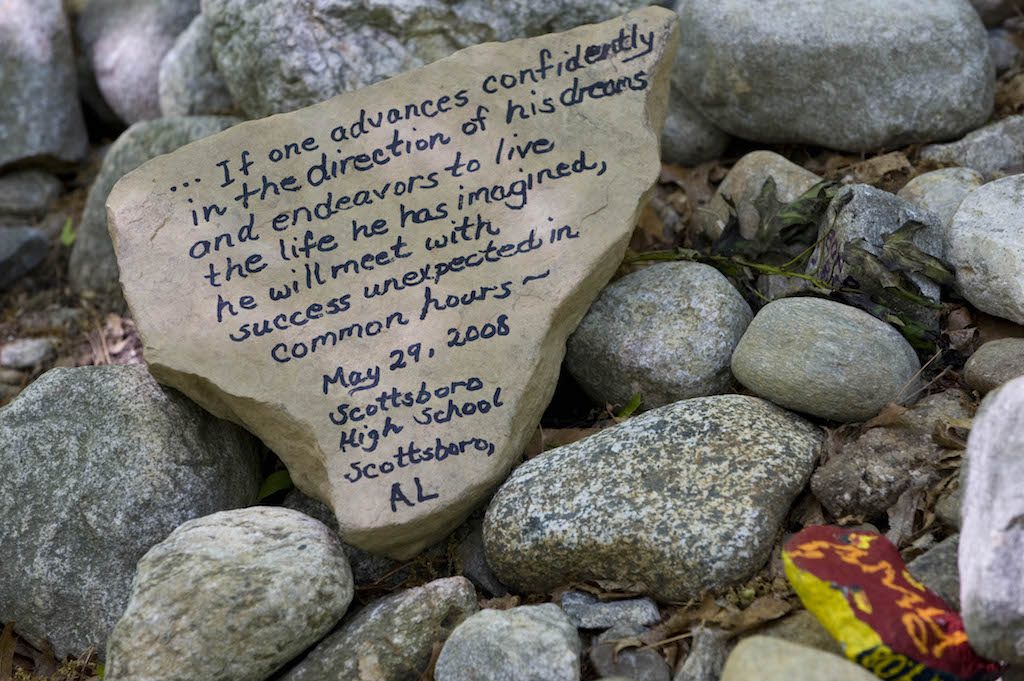 ... If one advances confidently
in the direction of his dreams
and endeavors to live
the life he has imagined,
he will meet with
success unexpected in
common hours ~
May 29, 2008
Scottsboro
High School
Scottsboro,
AL